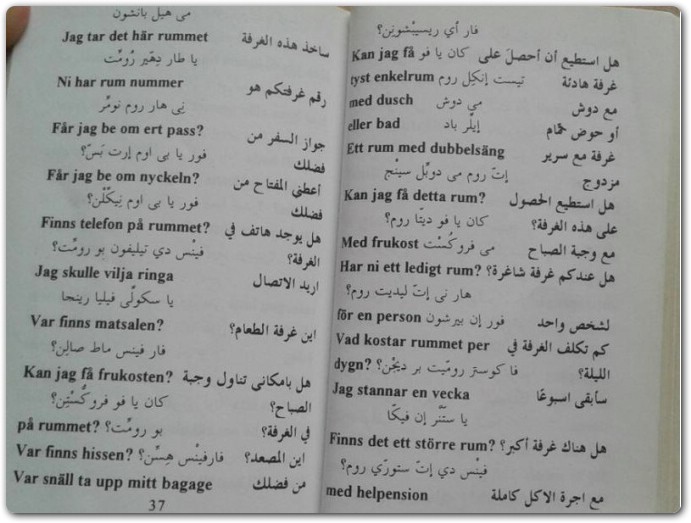 فار أي ريسيبْشونين؟
هل استطيع أن أحصل على كان يا فو Kan jag få
غرفة هادئة تيست إنكِل روم tyst enkelrum
مع دوش مي دوش med dusch
أو حوض حمّام إيلّر باد eller bad
غرفة مع سرير Ett rum med dubbelsäng
مزدوج إتّ روم مي دوبِّل سينْج
هل استطيع الحصول Kan jag få detta rum?
على هذه الغرفة؟ كان يا فو ديتّا روم؟
مع وجبة الصباح مي فروكُسْت Med frukost
هل عندكم غرفة شاغرة؟ Har ni ett ledigt rum?
هار ني إتّ ليديت روم؟
لشخص واحد فور إن بيرشون för en person
كم تكلف الغرفة في Vad kostar rummet per
الليلة؟ فا كوستر رومّيت بر ديجْن؟ dygn?
سأبقى اسبوعًا Jag stannar en vecka
يا ستنّر إن فيكّا
هل هناك غرفة أكبر؟ Finns det ett större rum?
فينْس دي إتّ ستورّي روم؟
مع اجرة الاكل كاملة med helpension
مي هيل بانشون
سآخذ هذه الغرفة Jag tar det här rummet
يا طار دِهَير رُومّت
رقم غرفتكم هو Ni har rum nummer
نِي هار روم نومّر
جواز السفر من Får jag be om ert pass?
فضلك فور يا بي اوم إرت بَسّ؟
أعطني المفتاح من Får jag be om nyckeln?
فضلك فور يا بي اوم نِيكّلْن؟
هل يوجد هاتف في Finns telefon på rummet?
الغرفة؟ فينْس دي تيليفون بو رومّت؟
اريد الاتصال Jag skulle vilja ringa
يا سكولّي فيليا رينجا
اين غرفة الطعام؟ Var finns matsalen?
فار فينس ماط صالِن؟
هل بامكاني تناول وجبة Kan jag få frukosten?
الصباح؟ كان يا فو فروكُسْتِن؟
في الغرفة؟ بو رومّت؟ på rummet?
اين المصعد؟ فارفينْس هِسّن؟ Var finns hissen?
من فضلك Var snäll ta upp mitt bagage
37